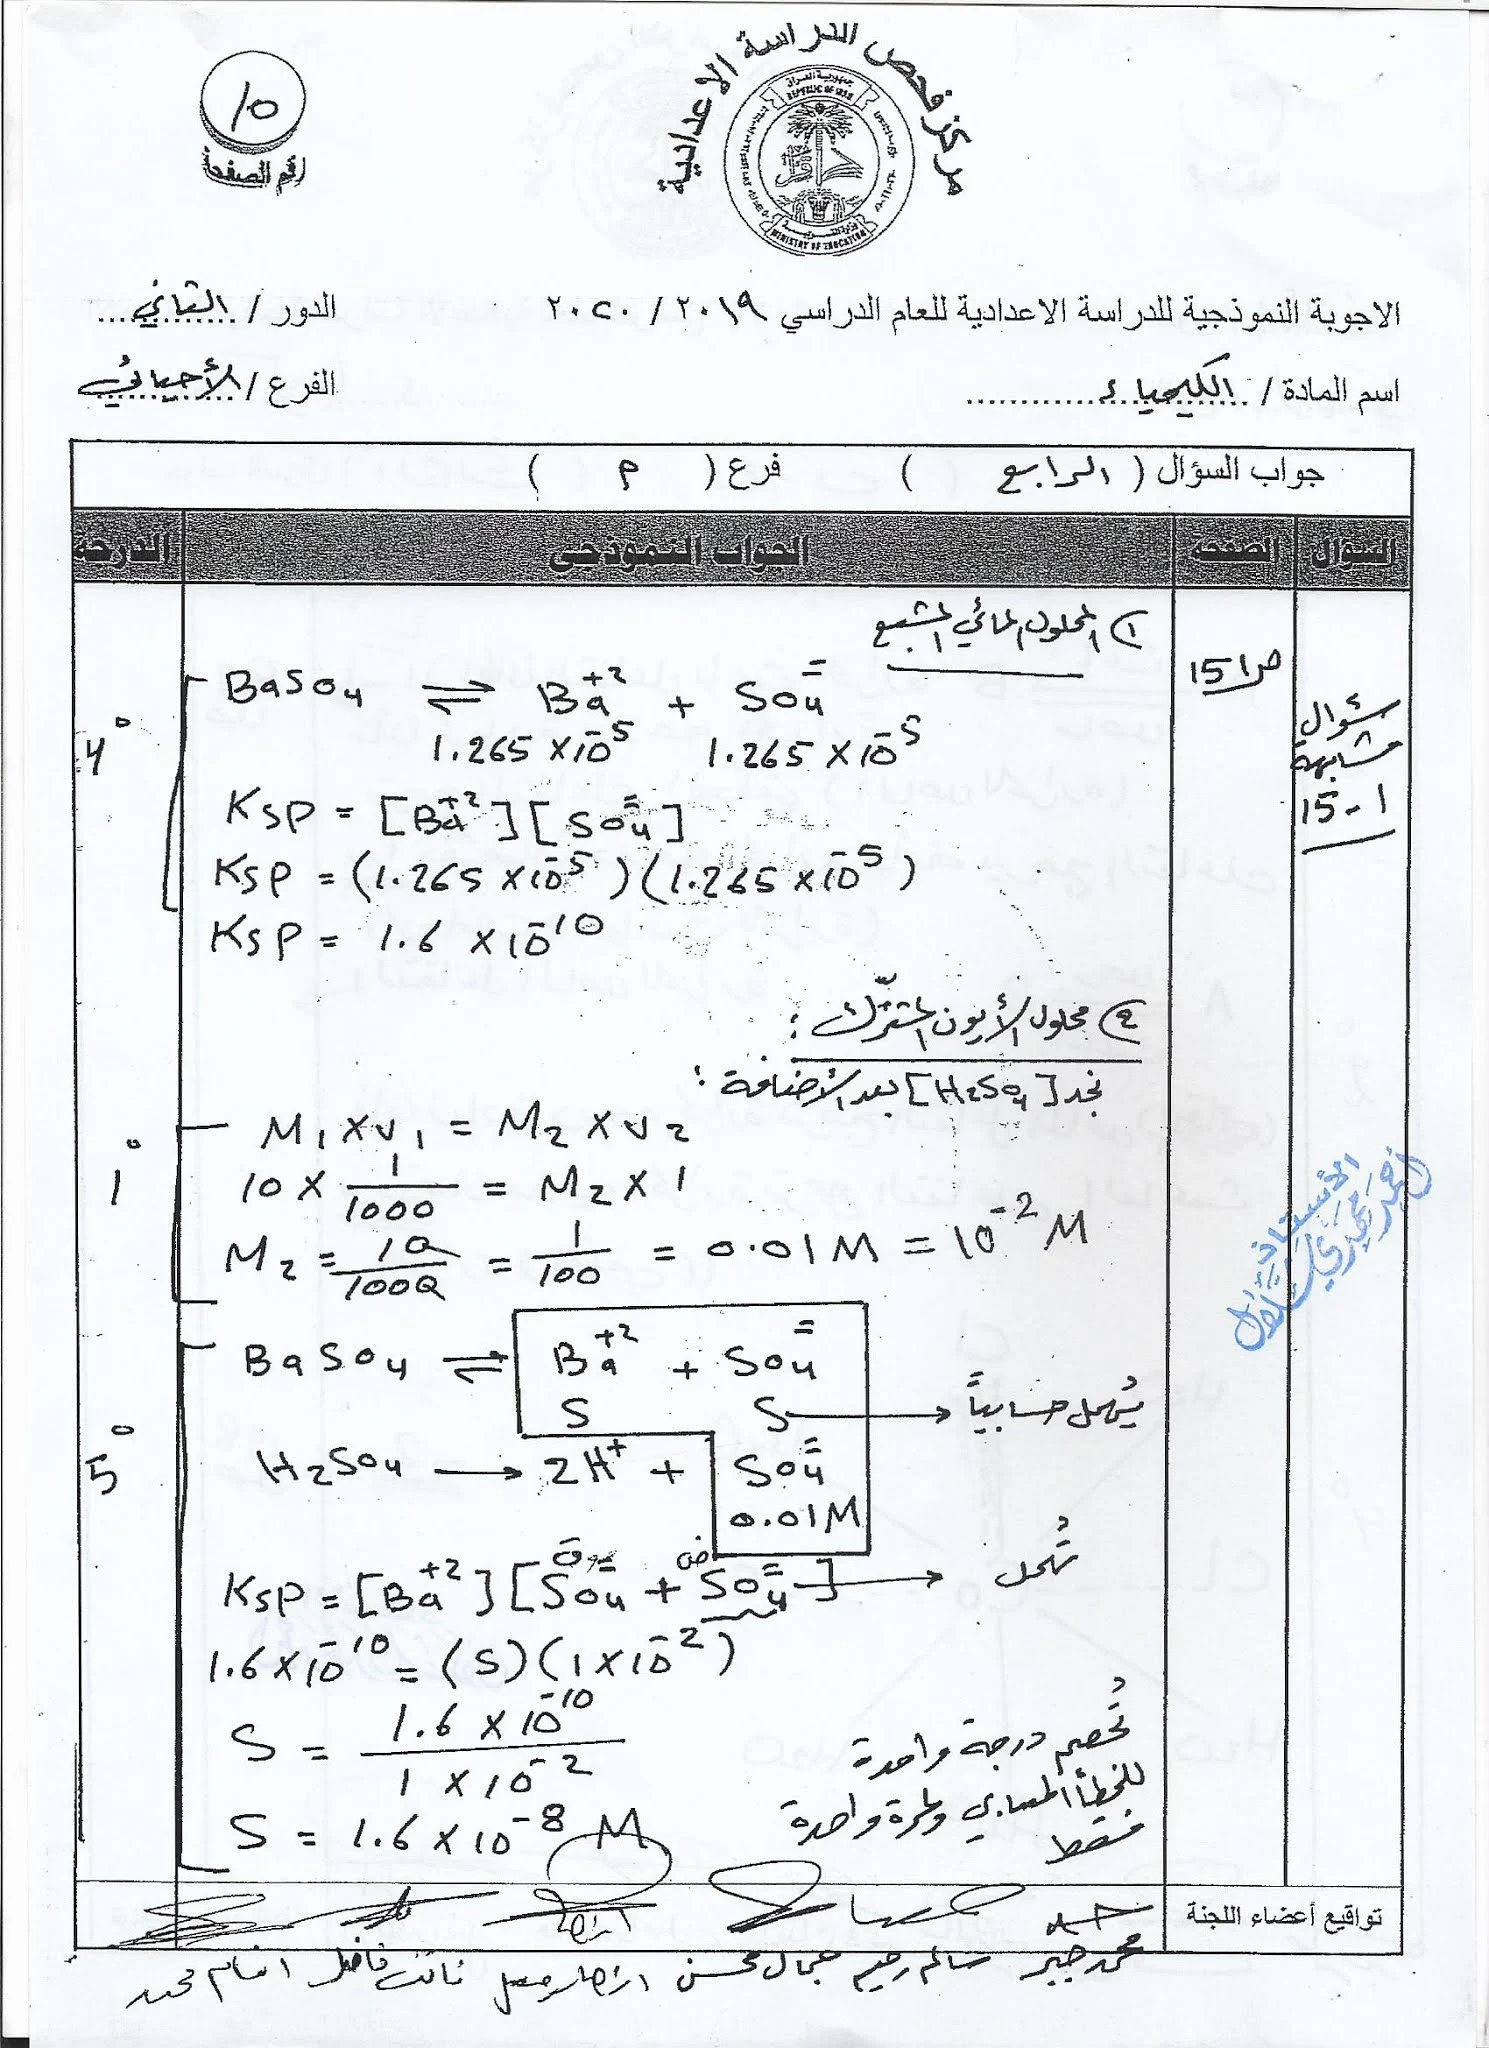 مركز فحص الدراسة الاعدادية
جمهورية العراق
REPUBLIC OF IRAQ
وزارة التربية
MINISTRY OF EDUCATION
١٥
رقم الصفحة
الاجوبة النموذجية للدراسة الاعدادية للعام الدراسي ٢٠١٩ / ٢٠٢٠
الدور / الثاني
اسم المادة / الكيمياء
الفرع / الأحيائي
جواب السؤال ( الرابع ) فرع ( م )
السؤال الصفحة الجواب النموذجي الدرجة
١) المحلول المائي المشبع
ص 151
سؤال مشابهة
15-1
BaSO4 ⇌ Ba+2 + SO4=
1.265 ×10-5 1.265 ×10-5
4°
Ksp = [Ba+2][SO4=]
Ksp = (1.265 ×10-5)(1.265 ×10-5)
Ksp = 1.6 ×10-10
٢) محلول الأيون المشترك :
نجد [H2SO4] بعد الأضافة :
M1 × V1 = M2 × V2
1°
10 × 1/1000 = M2 × 1
M2 = 10/1000 = 1/100 = 0.01M = 10-2 M
BaSO4 ⇌ Ba+2 + SO4=
S S → يُهمل حسابياً
5°
H2SO4 → 2H+ + SO4=
0.01M
Ksp = [Ba+2][SO4= + SO4=] → تُهمل
1.6×10-10 = (S)(1×10-2)
S = 1.6 ×10-10 / 1 ×10-2
S = 1.6 ×10-8 M
تُخصم درجة واحدة
للخطأ الحسابي ولمرة واحدة
فقط
الأستاذ
تواقيع أعضاء اللجنة
محمد جبر سالم رحيم جمال محسن